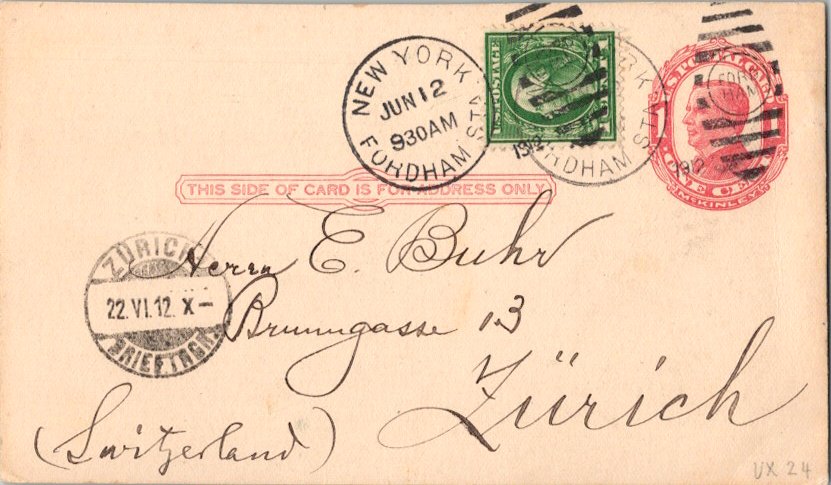 NEW YORK
JUN 12
930AM
1912
FORDHAM STA
U.S. POSTAGE
FORDHAM STA.
1912
U.S. POSTAL CARD
1
ONE CENT
McKINLEY
THIS SIDE OF CARD IS FOR ADDRESS ONLY
ZÜRICH
22.VI.12. X–
BRIEFTRGR.
Herrn E. Buhr
Brunngasse 13
Zürich
(Switzerland)
UX 24